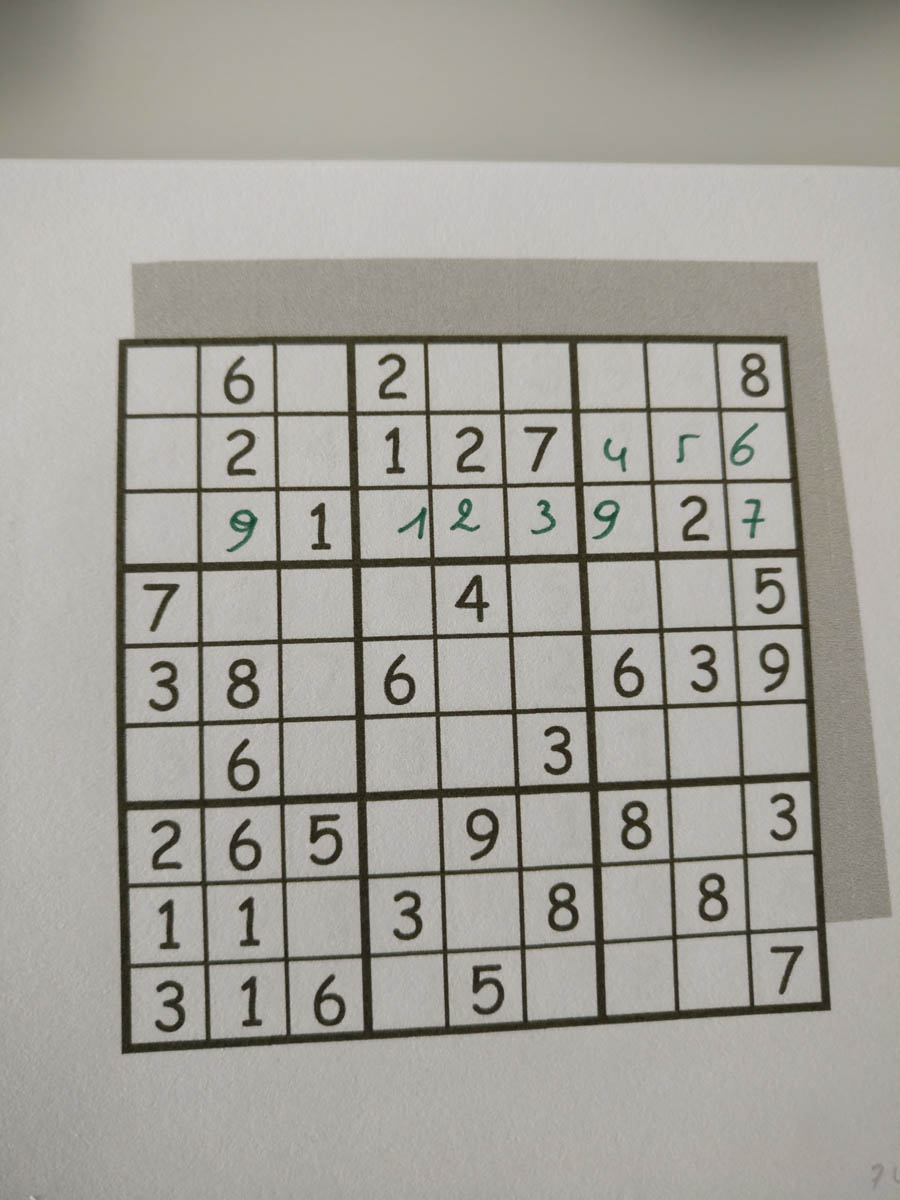 6 2 8
2 1 2 7 4 5 6
9 1 1 2 3 9 2 7
7 4 5
3 8 6 6 3 9
6 3
2 6 5 9 8 3
1 1 3 8 8
3 1 6 5 7